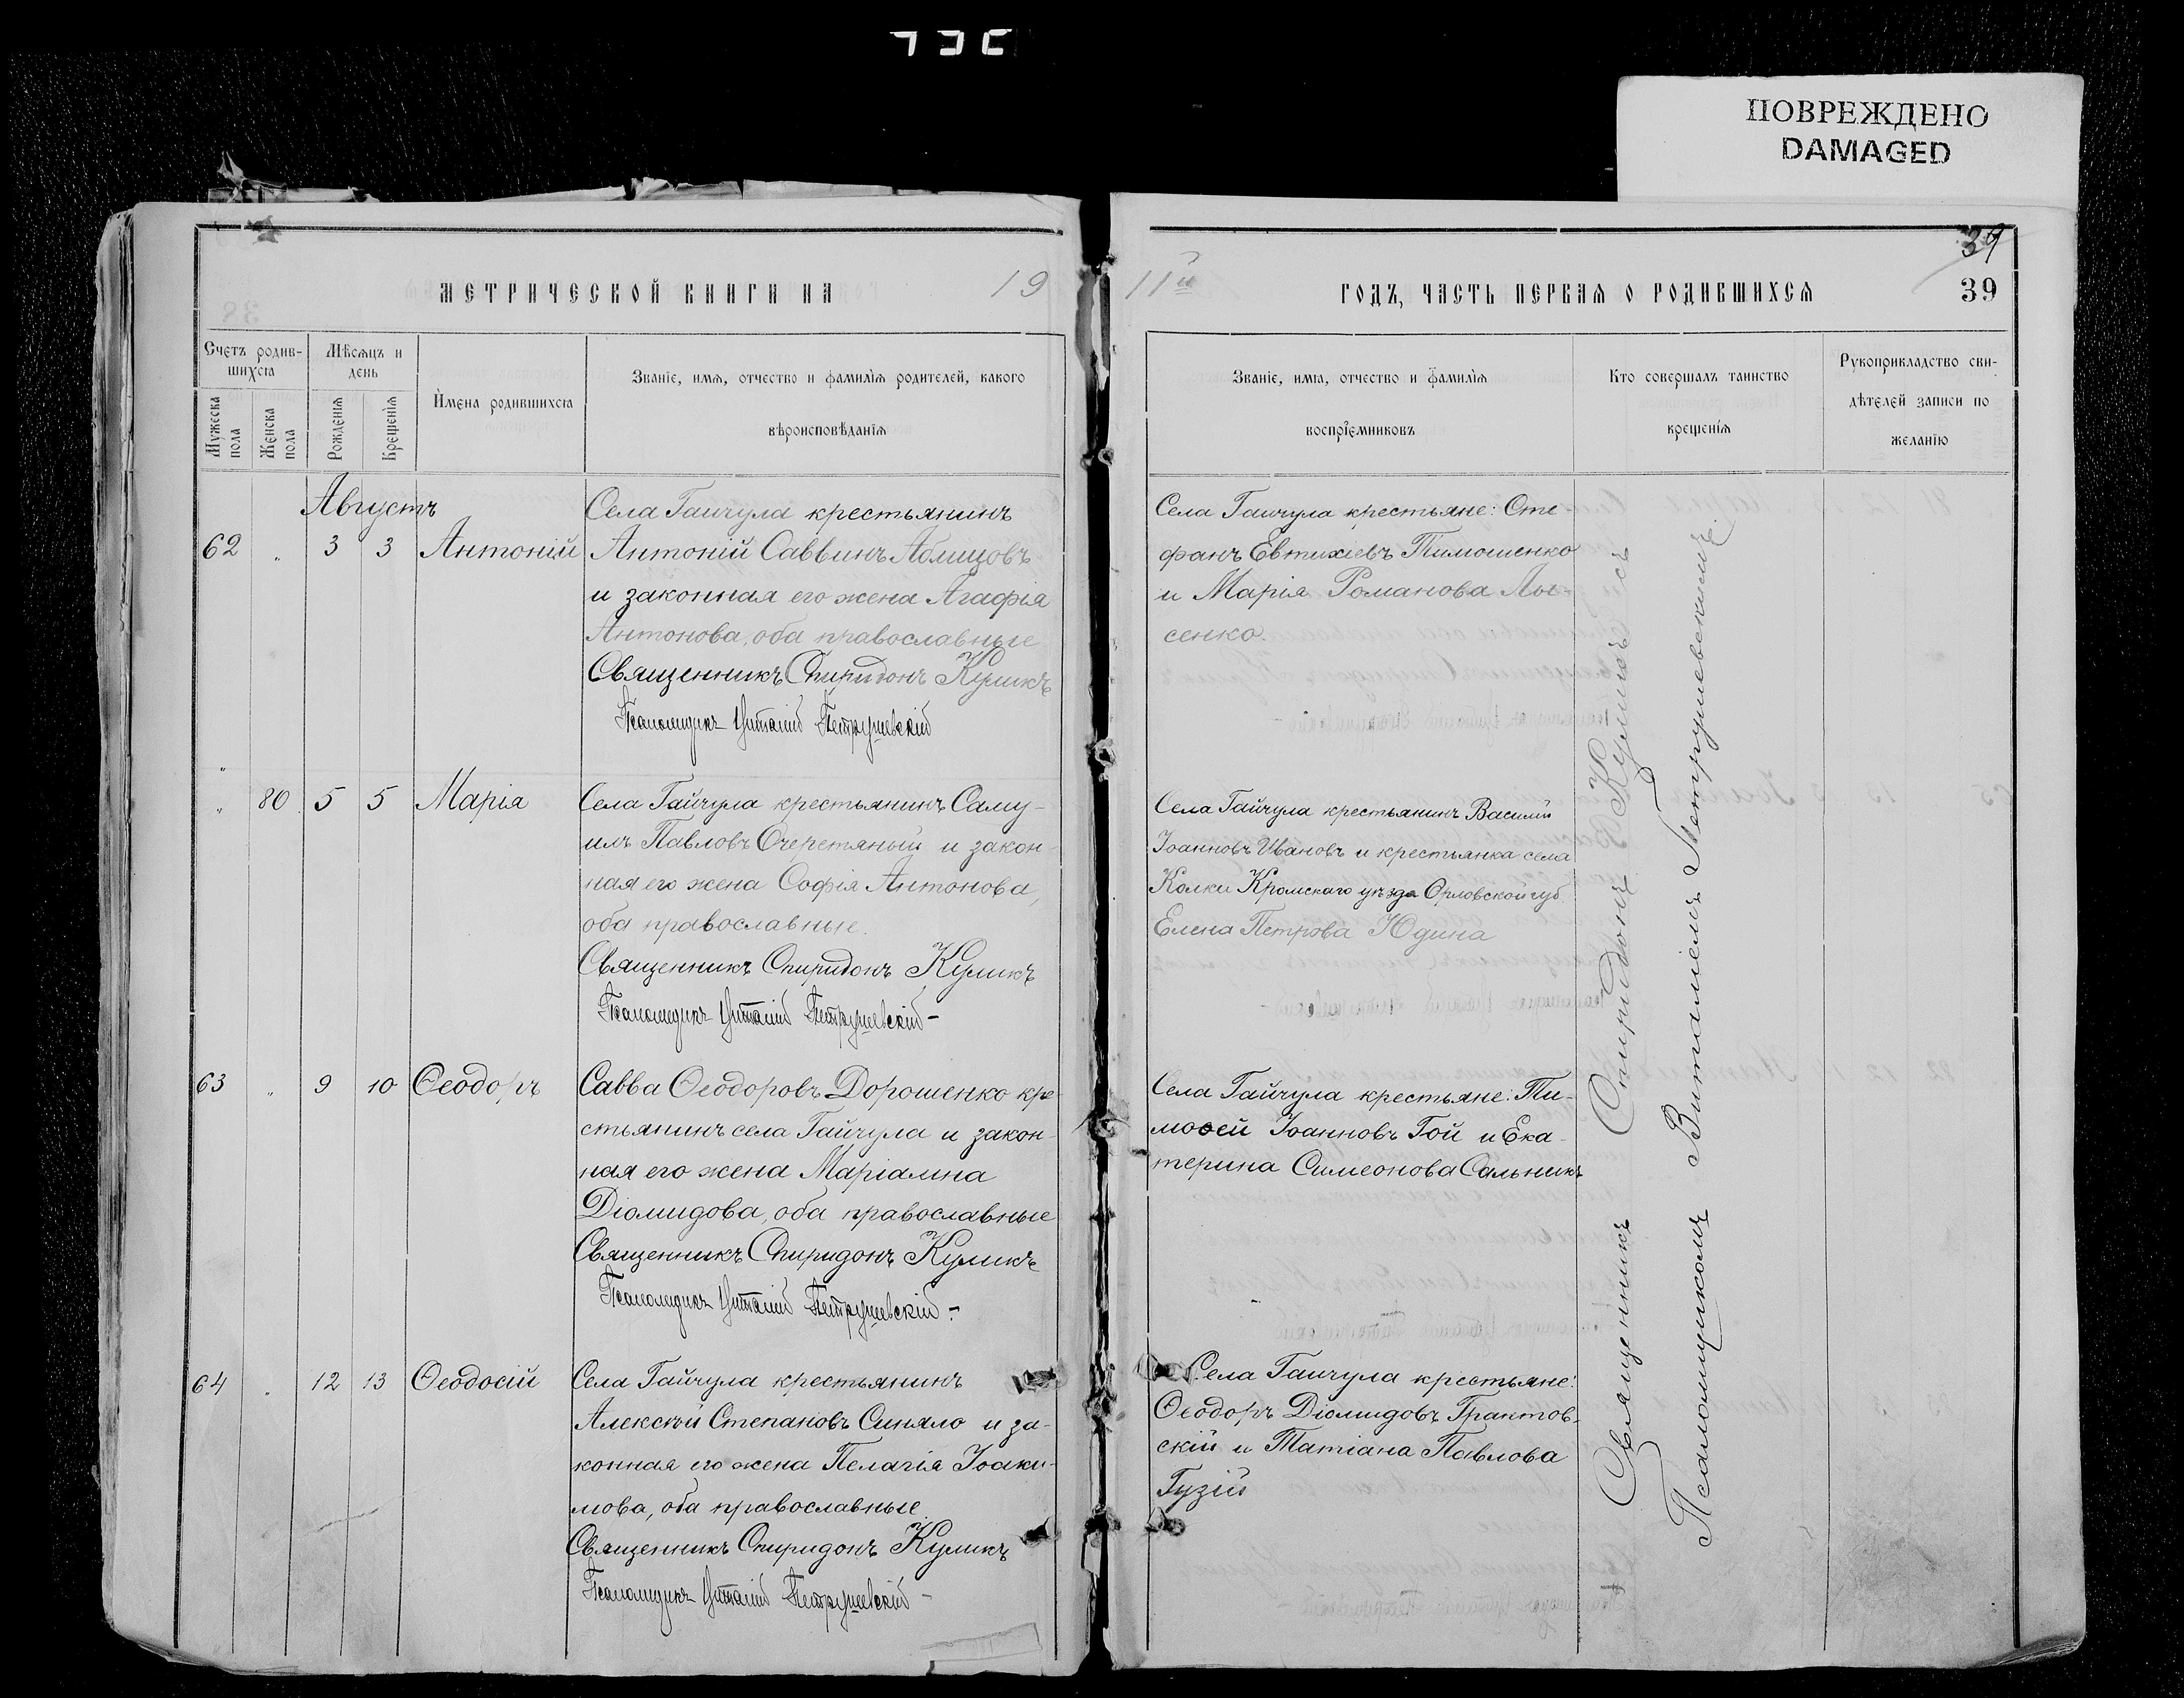 ПОВРЕЖДЕНО
DAMAGED
МЕТРИЧЕСКОЙ КНИГИ НА 19
11й ГОДЪ, ЧАСТЬ ПЕРВАЯ О РОДИВШИХСЯ
39
39
Счетъ родив-
шихся
Мужеска пола
Женска пола
Мѣсяцъ и
день
Рожденія
Крещенія
Имена родившихся
Званіе, имя, отчество и фамилія родителей, какого
вѣроисповѣданія
Званіе, имя, отчество и фамилія
воспріемниковъ
Кто совершалъ таинство
крещенія
Рукоприкладство сви-
дѣтелей записи по
желанію
Августъ
62 " 3 3 Антоній
Села Гайчула крестьянинъ
Антоній Саввинъ
и законная его жена Агафія
Антонова, оба православные
Священникъ Спиридонъ Куликъ
Псаломщикъ Виталій Петрушевскій
Села Гайчула крестьяне: Сте-
фанъ Евтихіевъ Тимошенко
и Марія Романова Лы-
сенко.
" 80 5 5 Марія
Села Гайчула крестьянинъ Саму-
илъ Павловъ Очеретяный и закон-
ная его жена Софія Антонова,
оба православные.
Священникъ Спиридонъ Куликъ
Псаломщикъ Виталій Петрушевскій-
Села Гайчула крестьянинъ Василій
Іоанновъ Ивановъ и крестьянка села
Колки Кромскаго уѣзда Орловской губ.
Елена Петрова Юдина
63 " 9 10 Ѳеодоръ
Савва Ѳеодоровъ Дорошенко кре-
стьянинъ села Гайчула и закон-
ная его жена Маріамна
Діомидова, оба православные
Священникъ Спиридонъ Куликъ
Псаломщикъ Виталій Петрушевскій-
Села Гайчула крестьяне: Ти-
моѳей Іоанновъ Гой и Ека-
терина Симеонова Сальникъ
64 " 12 13 Ѳеодосій
Села Гайчула крестьянинъ
Алексѣй Степановъ Синяло и за-
конная его жена Пелагія Іоаки-
мова, оба православные.
Священникъ Спиридонъ Куликъ
Псаломщикъ Виталій Петрушевскій-
Села Гайчула крестьяне:
Ѳеодоръ Діомидовъ Трактов-
скій и Татіана Павлова
Гузій
Священникъ Спиридонъ Куликъ съ
Псаломщикомъ Виталіемъ Петрушевскимъ.